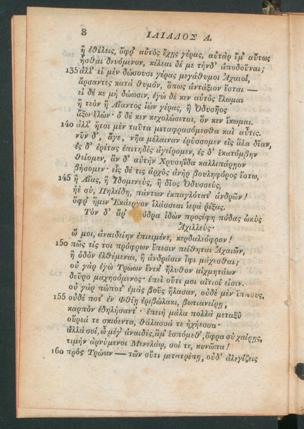 8 ΙΛΙΑΔΟΣ Α.
ἢ ἐθέλεις, ὄφρ' αὐτὸς ἔχῃς γέρας, αὐτὰρ ἔμ' αὔτως
ἧσθαι δευόμενον, κέλεαι δέ με τήνδ' ἀποδοῦναι;
135 ἀλλ' εἰ μὲν δώσουσι γέρας μεγάθυμοι Ἀχαιοί,
ἄρσαντες κατὰ θυμόν, ὅπως ἀντάξιον ἔσται —
εἰ δέ κε μὴ δώωσιν, ἐγὼ δέ κεν αὐτὸς ἕλωμαι
ἢ τεὸν ἢ Αἴαντος ἰὼν γέρας, ἢ Ὀδυσῆος
ἄξω ἑλών· ὁ δέ κεν κεχολώσεται, ὅν κεν ἵκωμαι.
140 ἀλλ' ἤτοι μὲν ταῦτα μεταφρασόμεσθα καὶ αὖτις.
νῦν δ', ἄγε, νῆα μέλαιναν ἐρύσσομεν εἰς ἅλα δῖαν,
ἐς δ' ἐρέτας ἐπιτηδὲς ἀγείρομεν, ἐς δ' ἑκατόμβην
θείομεν, ἂν δ' αὐτὴν Χρυσηΐδα καλλιπάρῃον
βήσομεν· εἷς δέ τις ἀρχὸς ἀνὴρ βουληφόρος ἔστω,
145 ἢ Αἴας, ἢ Ἰδομενεύς, ἢ δῖος Ὀδυσσεύς,
ἠὲ σύ, Πηλείδη, πάντων ἐκπαγλότατ' ἀνδρῶν!
ὄφρ' ἥμιν Ἑκάεργον ἱλάσσεαι ἱερὰ ῥέξας.
Τὸν δ' ἄρ' ὑπόδρα ἰδὼν προσέφη πόδας ὠκὺς
Ἀχιλλεύς·
ὤ μοι, ἀναιδείην ἐπιειμένε, κερδαλεόφρον!
150 πῶς τίς τοι πρόφρων ἔπεσιν πείθηται Ἀχαιῶν,
ἢ ὁδὸν ἐλθέμεναι, ἢ ἀνδράσιν ἶφι μάχεσθαι;
οὐ γὰρ ἐγὼ Τρώων ἕνεκ' ἤλυθον αἰχμητάων
δεῦρο μαχησόμενος· ἐπεὶ οὔτι μοι αἴτιοί εἰσιν.
οὐ γὰρ πώποτ' ἐμὰς βοῦς ἤλασαν, οὐδὲ μὲν ἵππους,
155 οὐδέ ποτ' ἐν Φθίῃ ἐριβώλακι, βωτιανείρῃ,
καρπὸν ἐδηλήσαντ'· ἐπειὴ μάλα πολλὰ μεταξὺ
οὔρεά τε σκιόεντα, θάλασσά τε ἠχήεσσα·
ἀλλὰ σοί, ὦ μέγ' ἀναιδές, ἅμ' ἑσπόμεθ', ὄφρα σὺ χαίρῃς,
τιμὴν ἀρνύμενοι Μενελάῳ, σοί τε, κυνῶπα!
160 πρὸς Τρώων — τῶν οὔτι μετατρέπῃ, οὐδ' ἀλεγίζεις